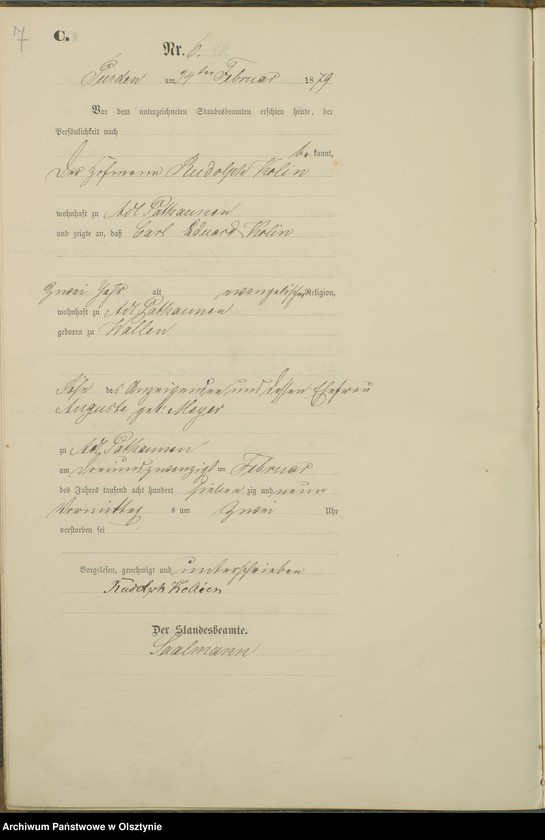 7
C.
Nr. 6.
Purden am 24ten Februar 1879.
Vor dem unterzeichneten Standesbeamten erschien heute, der
Persönlichkeit nach
bekannt,
Der Hofmann Rudolph Kolin
wohnhaft zu Adl Patraunen
und zeigte an, daß Carl Eduard Kolin
Zwei Jahr alt evangelischer Religion,
wohnhaft zu Adl Patraunen
geboren zu Wallen
Sohn des Anzeigenden und dessen Ehefrau
Auguste geb: Meyer
zu Adl Patraunen
am dreiundzwanzigsten Februar
des Jahres tausend acht hundert siebenzig und neun
Vormittags um Zwei Uhr
verstorben sei
Vorgelesen, genehmigt und unterschrieben
Rudolph
Der Standesbeamte.
Saalmann
Archiwum Państwowe w Olsztynie